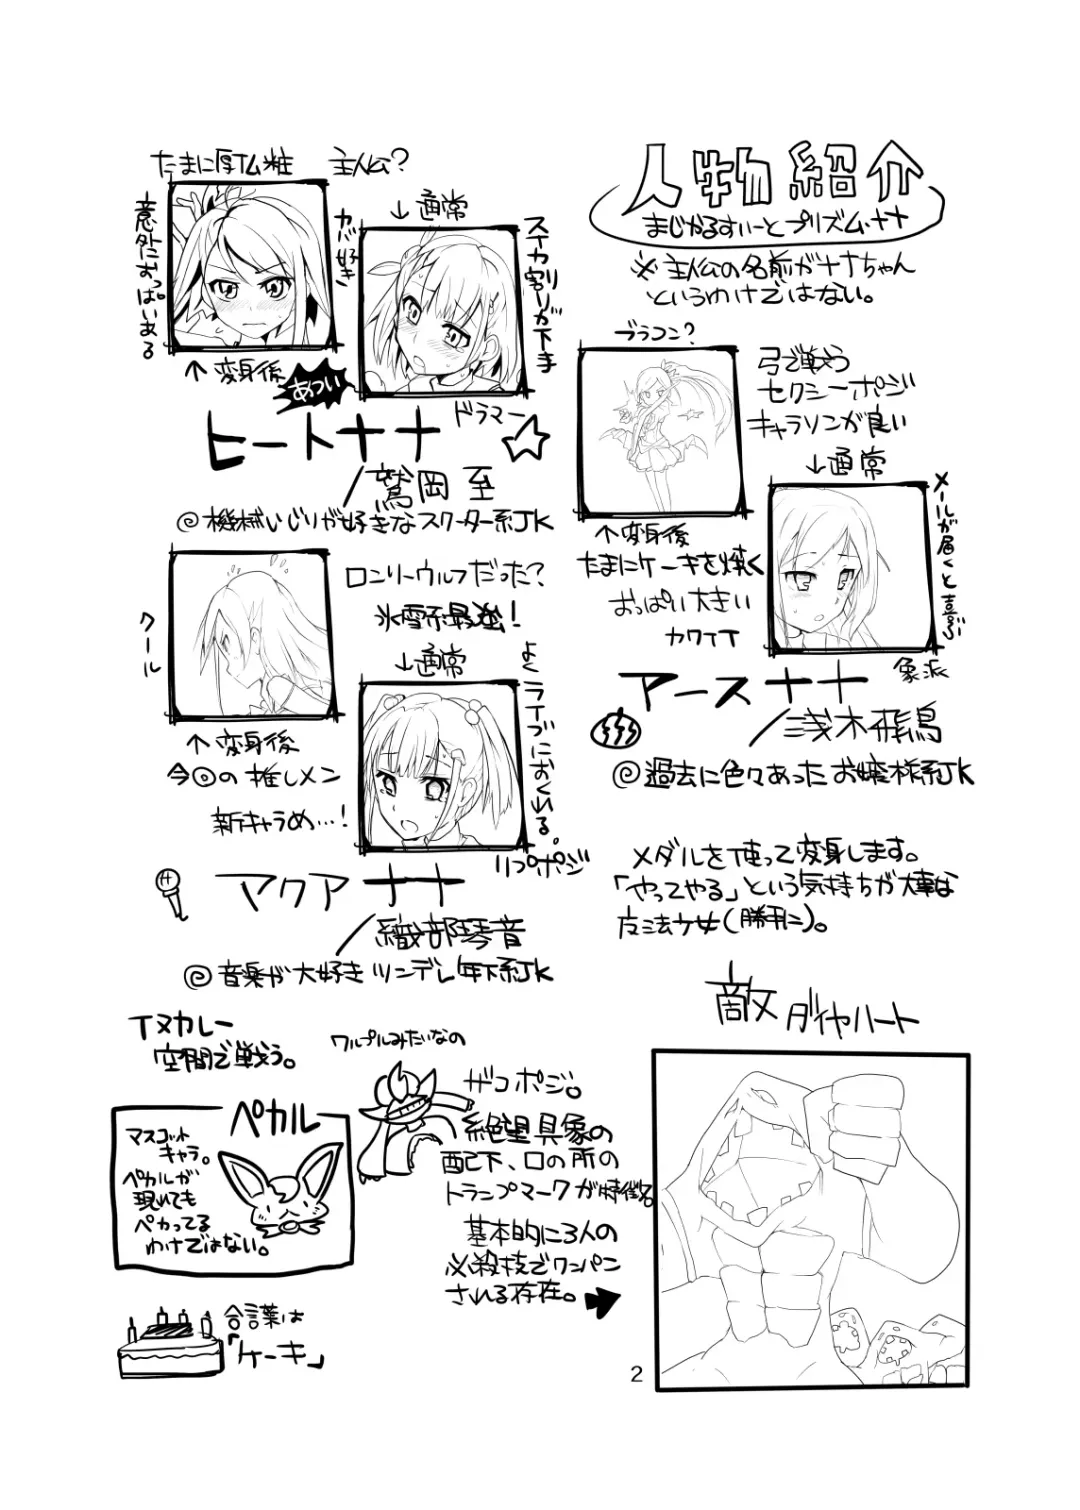 人物紹介
まじかるすいーとプリズム・ナナ
※主人公の名前がナナちゃん
というわけではない。
たまに厚化粧
主人公?
意外におっぱいある
↑変身後
↓通常
カバ好き
スイカ割りが下手
あつい
ドラマー
ヒートナナ
/鷲岡至
@機械いじりが好きなスクーター系JK
ブラコン?
弓で戦う
セクシーポジ
キャラソンが良い
↑変身後
↓通常
たまにケーキを焼く
おっぱい大きい
カワイイ
メールが届くと喜ぶ
象派
アースナナ
/浅木飛鳥
@過去に色々あったお嬢様系JK
クール
ロンリーウルフだった?
氷雪系最強!
↑変身後
↓通常
今◎の推しメン
新キャラめ…!
よくライブにおくれる。
リップポジ
アクアナナ
/織部琴音
@音楽が大好きツンデレ年下系JK
メダルを使って変身します。
「やってやる」という気持ちが大事な
魔法少女(勝手に)。
イヌカレー
空間で戦う。
ペカル
マスコット
キャラ。
ペカルが
現れても
ペカってる
わけではない。
合言葉は
「ケーキ」
ワルプルみたいなの
ザコポジ。
絶望具象の
配下、口の所の
トランプマークが特徴。
基本的に3人の
必殺技でワンパン
される存在。
敵 ダイヤハート
2